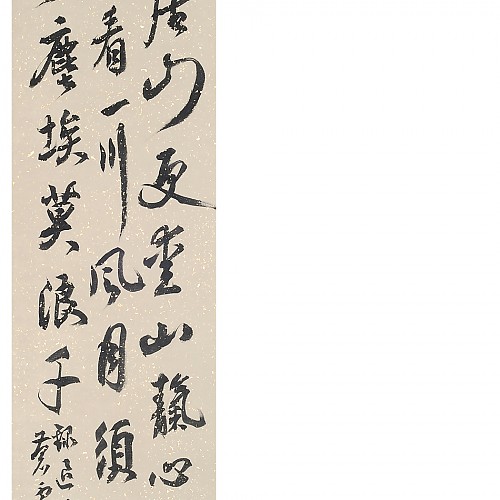 居山更愛山靜心
看一川風月須
塵埃莫浪千